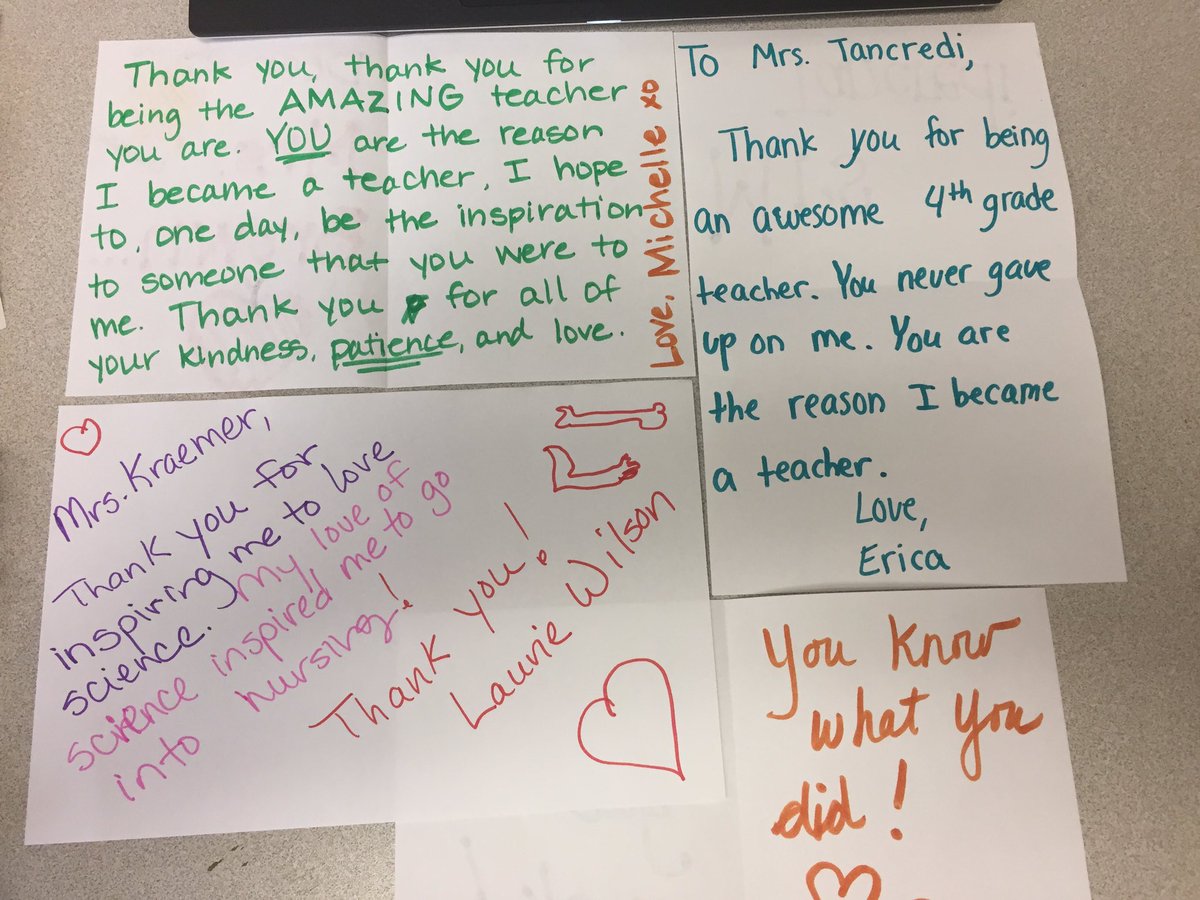 Thank you, thank you for
being the AMAZING teacher
you are. YOU are the reason
I became a teacher. I hope
to, one day, be the inspiration
to someone that you were to
me. Thank you for all of
your kindness, patience, and love.
Love, Michelle xo
To Mrs. Tancredi,
Thank you for being
an awesome 4th grade
teacher. You never gave
up on me. You are
the reason I became
a teacher.
Love,
Erica
Mrs. Kraemer,
Thank you for
inspiring me to love
science. My love of
science inspired me to go
into nursing!
Thank you!
Laurie Wilson
You know
what you
did!